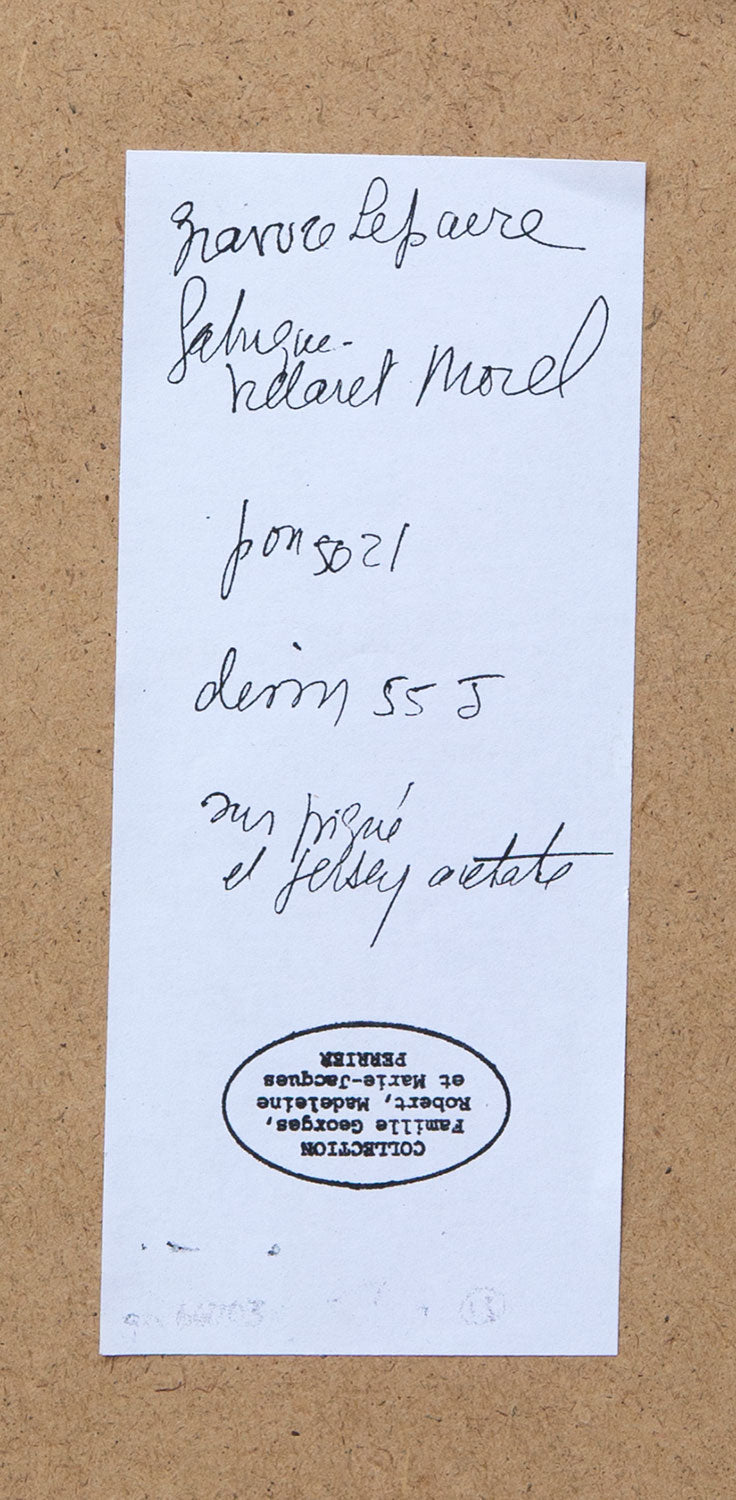 gravure Lepaire
fabrique
Velaret Morel
pon 5021
dessin 55 J
sur piqué
et jersey acétate
COLLECTION
Famille Georges,
Robert, Madeleine
et Marie-Jacques
PERRIER